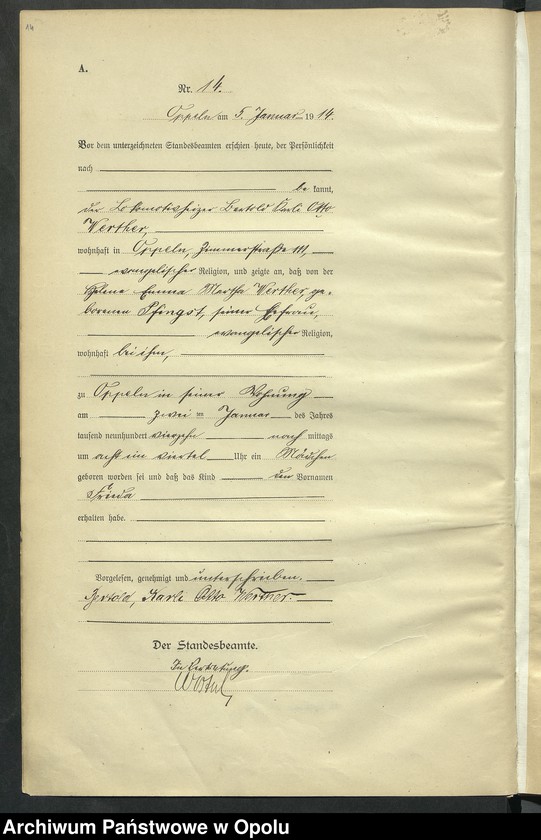 14
A.
Nr. 14.
Oppeln am 5. Januar 1914.
Vor dem unterzeichneten Standesbeamten erschien heute, der Persönlichkeit
nach
be kannt,
der Lokomotivheizer Bertold Karl Otto
Werther,
wohnhaft in Oppeln, Zimmerstraße
evangelischer Religion, und zeigte an, daß von der
Helene Emma Martha Werther, ge-
borenen Pfingst, seiner Ehefrau,
evangelischer Religion,
wohnhaft bei ihm,
zu Oppeln in seiner Wohnung
am zwei ten Januar des Jahres
tausend neunhundert vierzehn nach mittags
um acht ein viertel Uhr ein Mädchen
geboren worden sei und daß das Kind den Vornamen
Frieda
erhalten habe.
Vorgelesen, genehmigt und unterschrieben.
Bertold, Karl Otto Werther.
Der Standesbeamte.
In Vertretung.
Archiwum Państwowe w Opolu